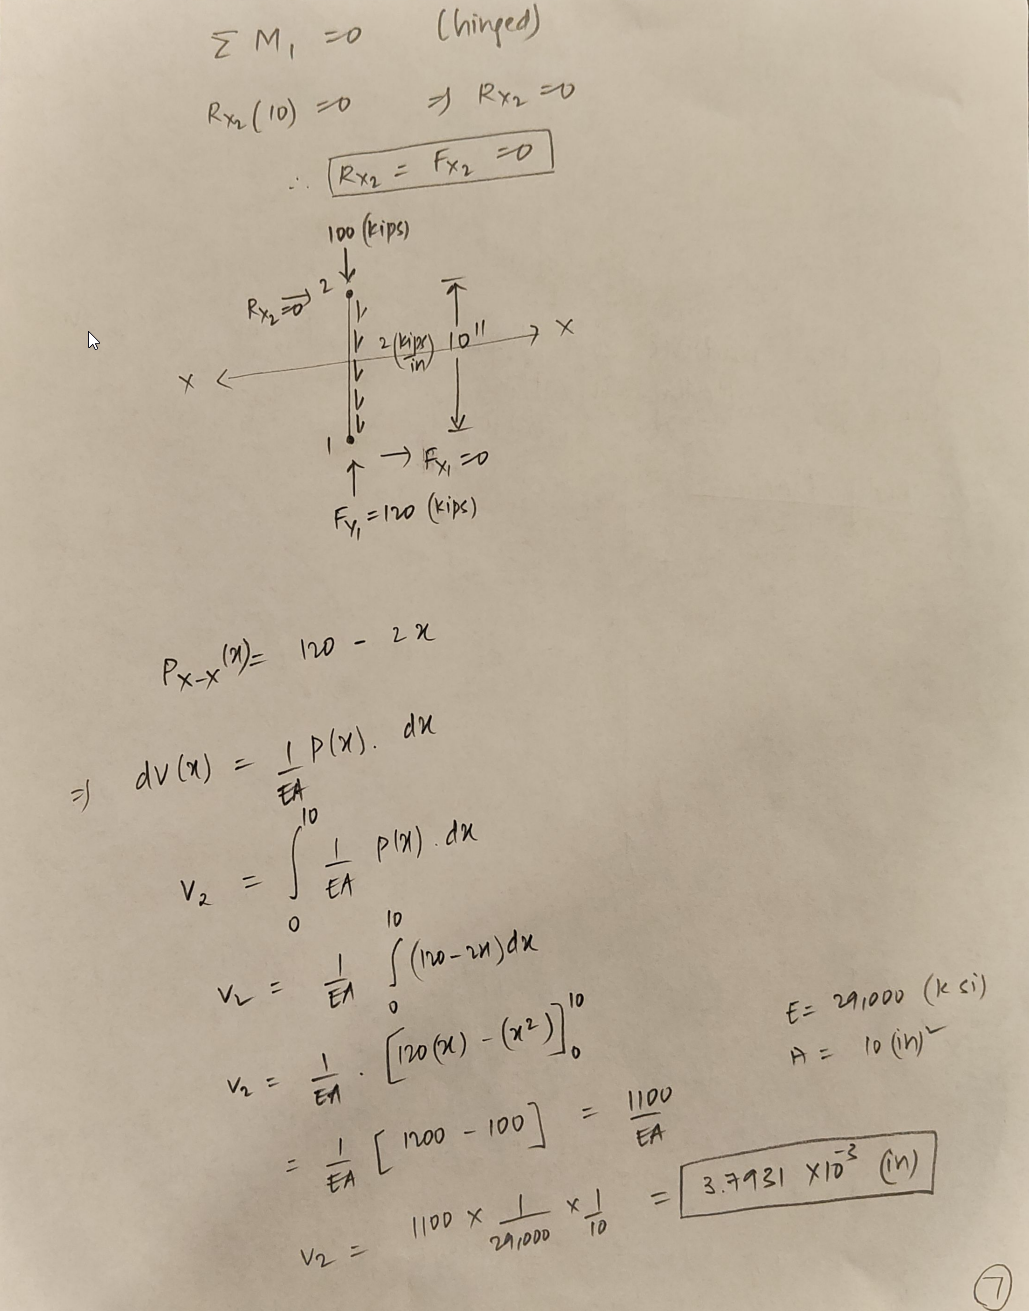 Σ M₁ = 0 (hinged)
Rx₂(10) = 0 ⇒ Rx₂ = 0
∴ Rx₂ = Fx₂ = 0
100 (kips)
Rx₂=0 → 2
2 (kips/in) 10" X
X
1 → Fx₁ = 0
Fy₁ = 120 (kips)
Px-x(x) = 120 - 2x
⇒ dv(x) = 1/EA P(x). dx
V₂ = ∫₀¹⁰ 1/EA P(x). dx
V₂ = 1/EA ∫₀¹⁰ (120-2x)dx
E = 29,000 (ksi)
V₂ = 1/EA . [120(x) - (x²)]₀¹⁰
A = 10 (in)²
= 1/EA [1200 - 100] = 1100/EA
V₂ = 1100 × 1/29,000 × 1/10 = 3.7931 × 10⁻³ (in)
7